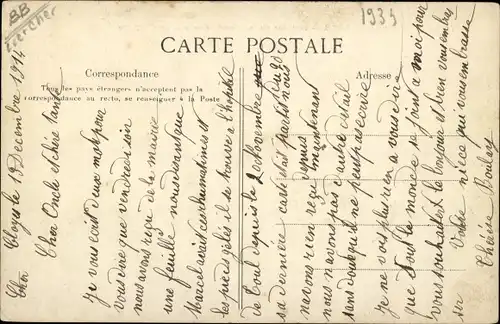 BB
1934
CARTE POSTALE
Correspondance
Tous les pays étrangers n'acceptent pas la
correspondance au recto, se renseigner à la Poste
Adresse
Cloyes le 13 Décembre 1914
Cher Oncle et chère tante
Je vous écrit deux mots pour
vous dire que vendredi soir
nous avons reçu de la mairie
une feuille nous disant que
Marcel avait ces rhumatimes et
les pieds gelés il se trouve a l'hopital
de Toul depuis le 20 Novembre
sa dernière carte était partit du 20
navons rien reçu depuis maintenant
nous navons pas d'autre détail
sans doute qu'il ne peut pas écrire
Je ne vois plus rien a vous dire
que tout le monde se joint a moi pour
vous souhaiter le bonjour et bien vous embrasser
Votre nièce qui vous embrasse
Thérèse